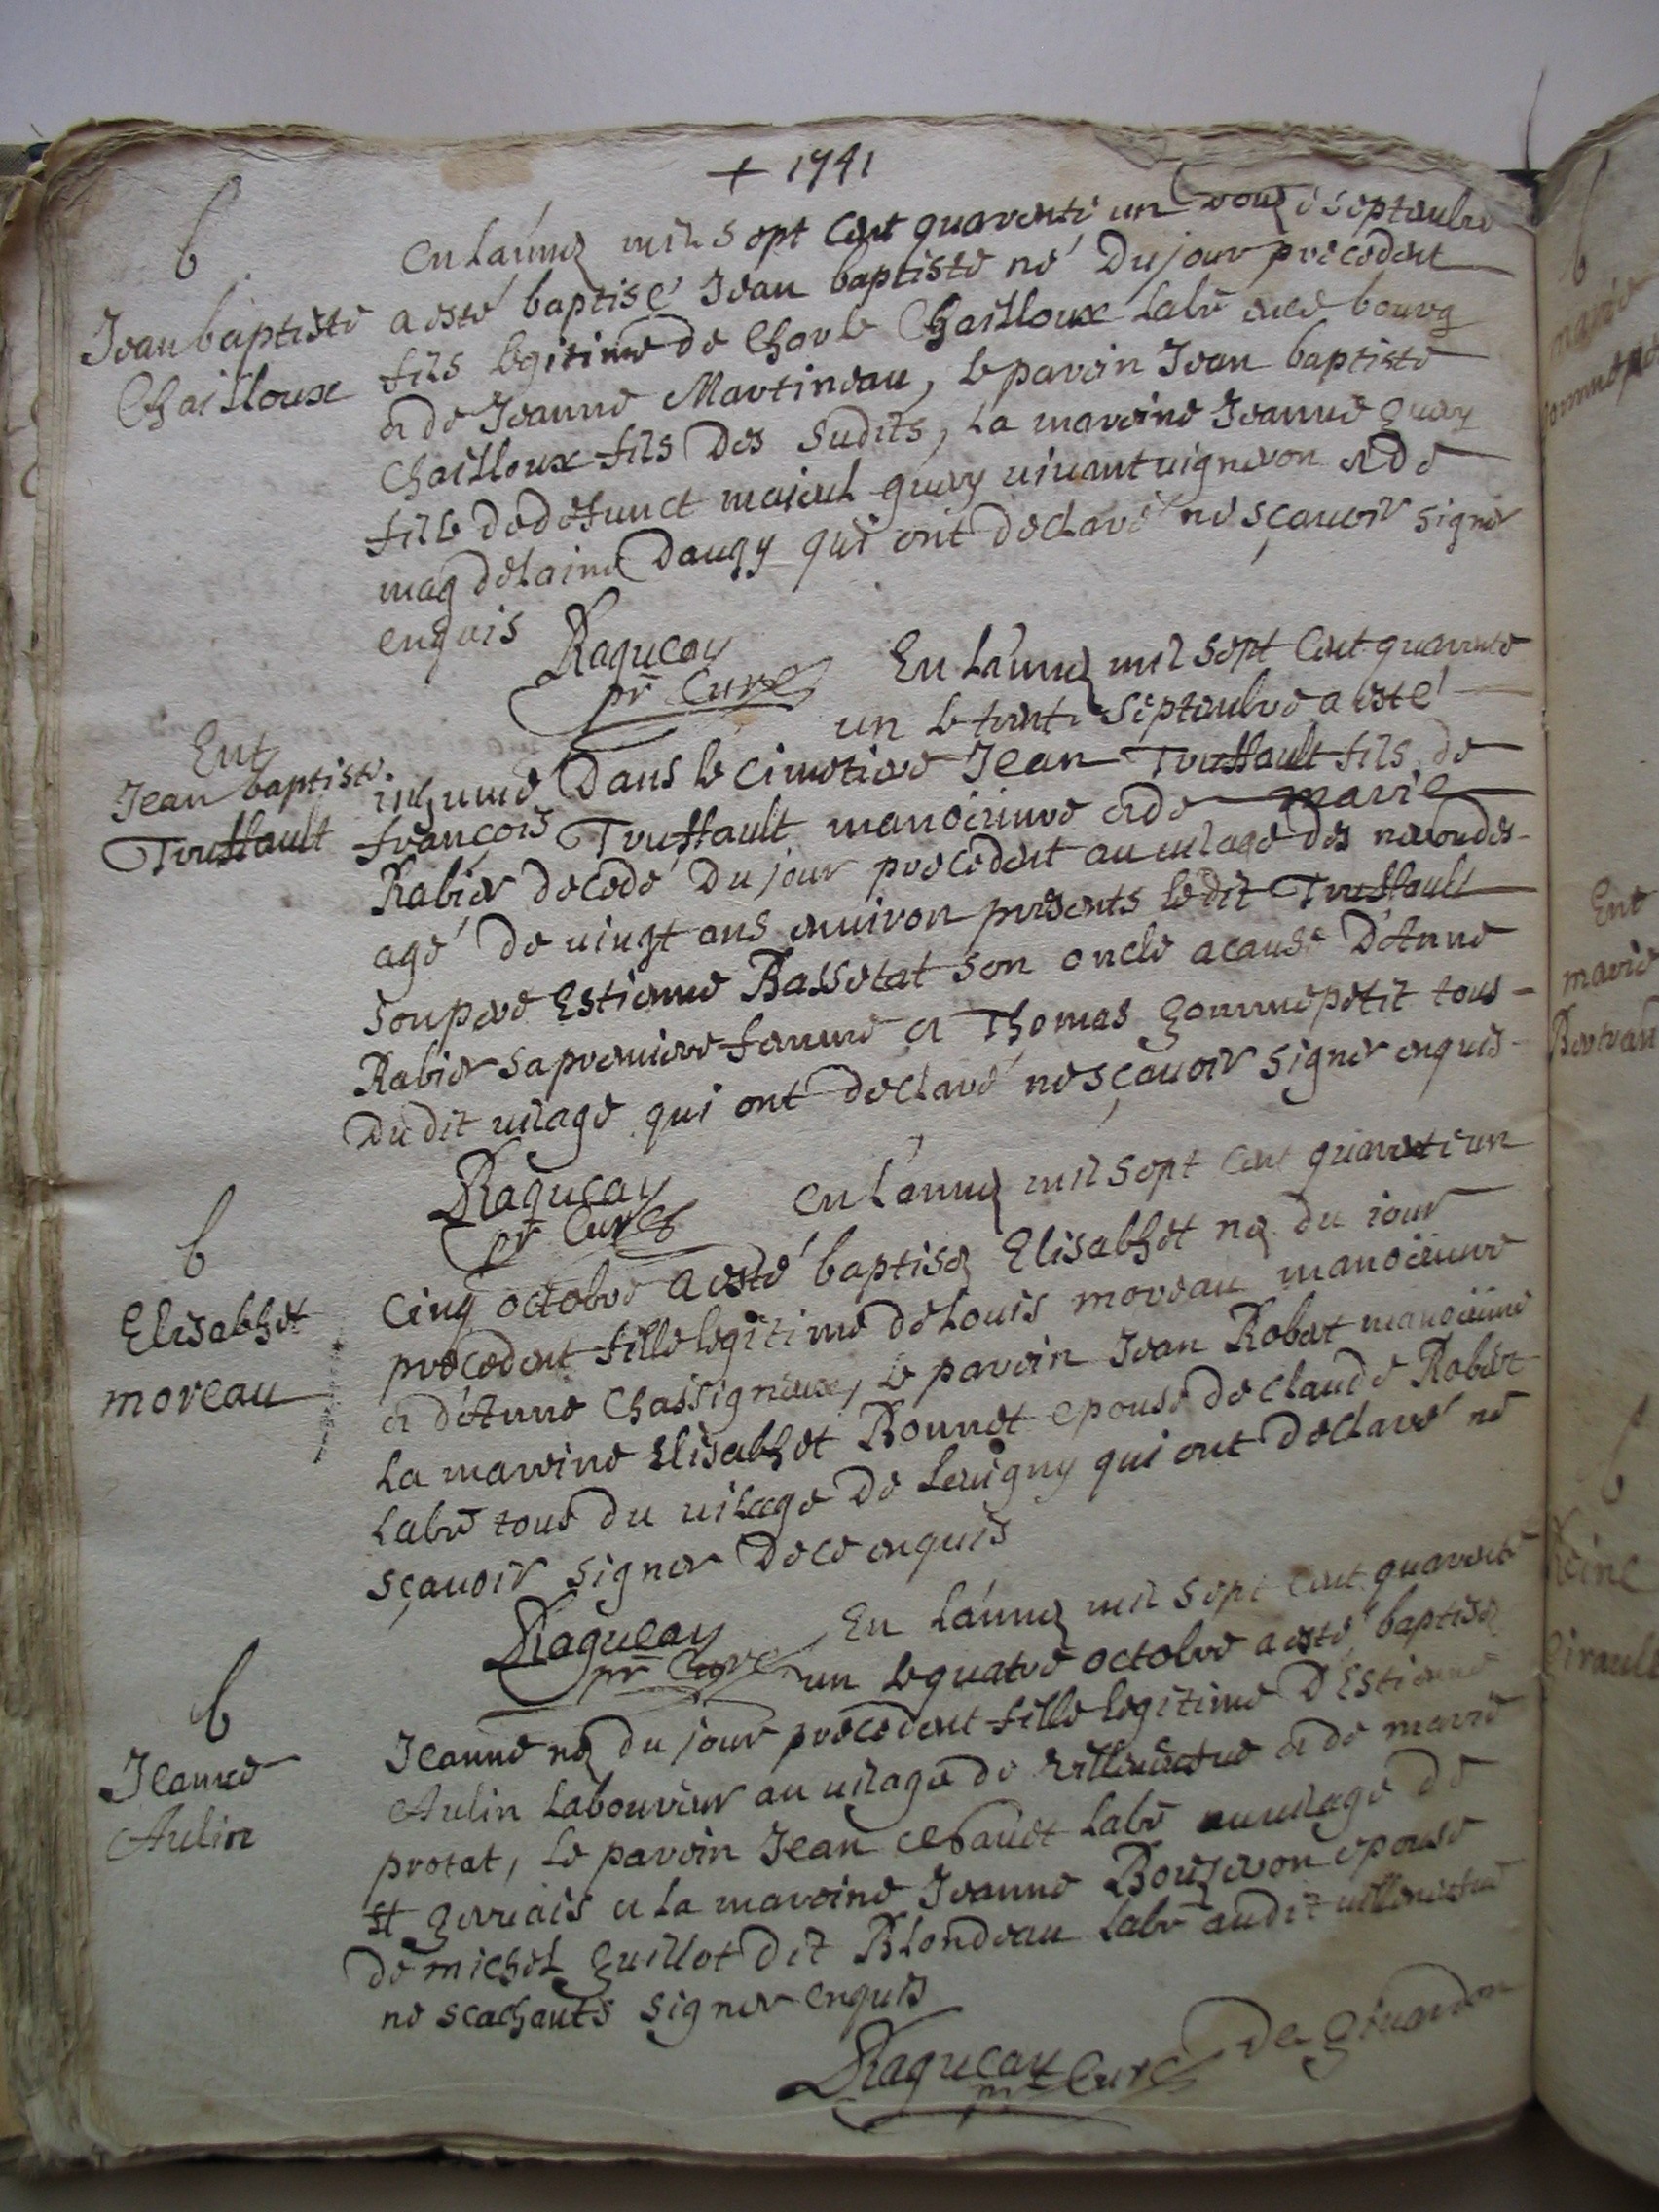 + 1741
b
Jean baptiste
Chailloux
en L'année mil sept Cent quarente un onze septembre
a esté baptisé Jean baptiste né Du jour precedent
fils legitime de Charle Chailloux Labr en ce bourg
et de Jeanne Martineau, le parein Jean baptiste
Chailloux fils Des Sudits, La mareine Jeanne guery
fille de defunct maieul guery vivant vigneron et de
magdelaine Daugy qui ont Declaré ne sçavoir signer
enquis
Ragueau
pr Curé
Ent
Jean baptiste
Truffault
En L'année mil sept Cent quarente
un le trente septembre a esté
inhumé Dans le cimetiere Jean Truffault fils de
françois Truffault maneuvre et de marie
Rabier decedé Du jour precedent au vilage des
agé de vingt ans environ presents ledit Truffault
son pere Estienne Rassetat son oncle a cause D'Anne
Rabier sa premiere femme et Thomas gommepetit tous
Du dit vilage qui ont declaré ne sçavoir signer enquis
Ragueau
pr Curé
b
Elisabhet
moreau
en L'année mil sept Cent quarente un
Cinq octobre a esté baptisée Elisabhet née du jour
precedent fille legitime de Louis moreau maneuvre
et d'Anne Chassigneux, le parein Jean Robert maneuvre
La mareine Elisabhet Bonnet epouse de Claude Robert
Labr tous du vilage de Leuigny qui ont Declaré ne
sçavoir signer De ce enquis
Ragueau
pr Curé
b
Jeanne
Aulin
En L'année mil sept Cent quarente
un le quatre octobre a esté baptisée
Jeanne née du jour precedent fille legitime D'Estienne
Aulin Laboureur au vilage de et de marie
protat, le parein Jean Labr au vilage de
st gervais et La mareine Jeanne Bourgeron epouse
de michel guillot dit Blondeau Labr audit
ne scachants signer enquis
Ragueau
pr Curé De
b
marie
Ent
marie
Bertran
b
Reine